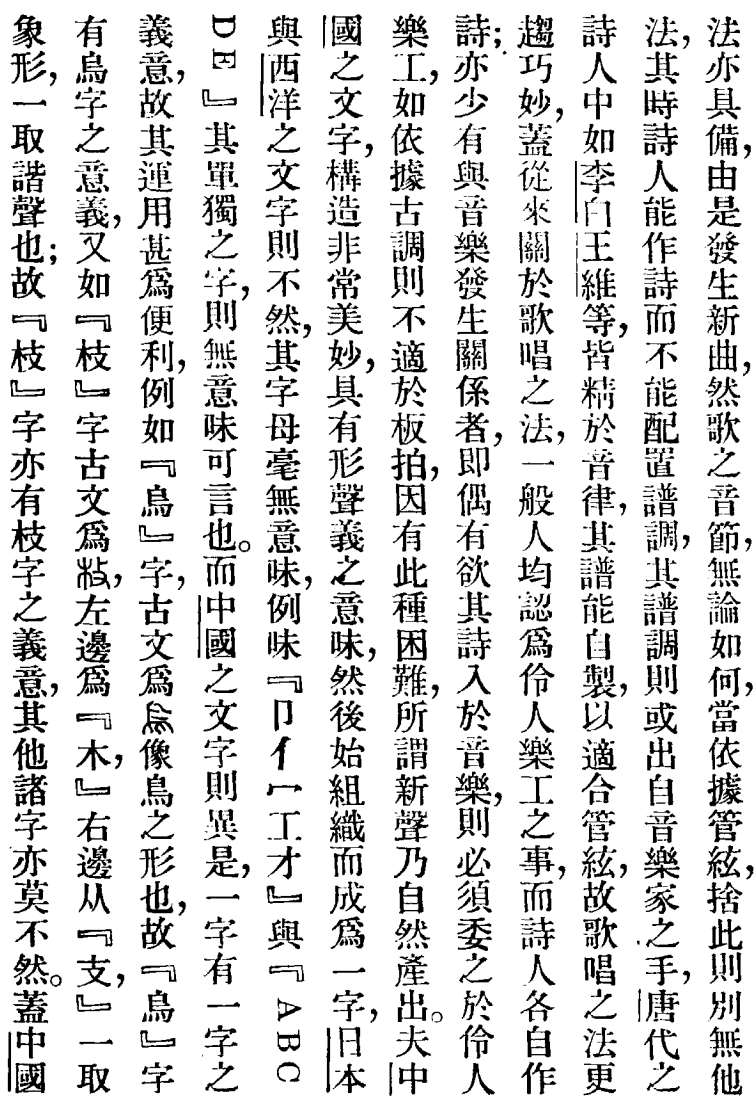 法亦具備，由是發生新曲，然歌之音節，無論如何，當依據管絃，捨此則別無他
法，其時詩人能作詩而不能配置譜調，其譜調則或出自音樂家之手，唐代之
詩人中如李白王維等，皆精於音律，其譜能自製，以適合管絃，故歌唱之法更
趨巧妙，蓋從來關於歌唱之法，一般人均認爲伶人樂工之事，而詩人各自作
詩；亦少有與音樂發生關係者，即偶有欲其詩入於音樂，則必須委之於伶人
樂工，如依據古調則不適於板拍，因有此種困難，所謂新聲乃自然產出。夫中
國之文字，構造非常美妙，具有形聲義之意味，然後始組織而成爲一字，日本
與西洋之文字則不然，其字母毫無意味，例味『卩亻宀工才』與『ABC
DE』其單獨之字，則無意味可言也。而中國之文字則異是，一字有一字之
義意，故其運用甚爲便利，例如『鳥』字，古文爲像鳥之形也，故『鳥』字
有鳥字之意義，又如『枝』字古文爲，左邊爲『木，』右邊从『支，』一取
象形，一取諧聲也；故『枝』字亦有枝字之義意，其他諸字亦莫不然。蓋中國